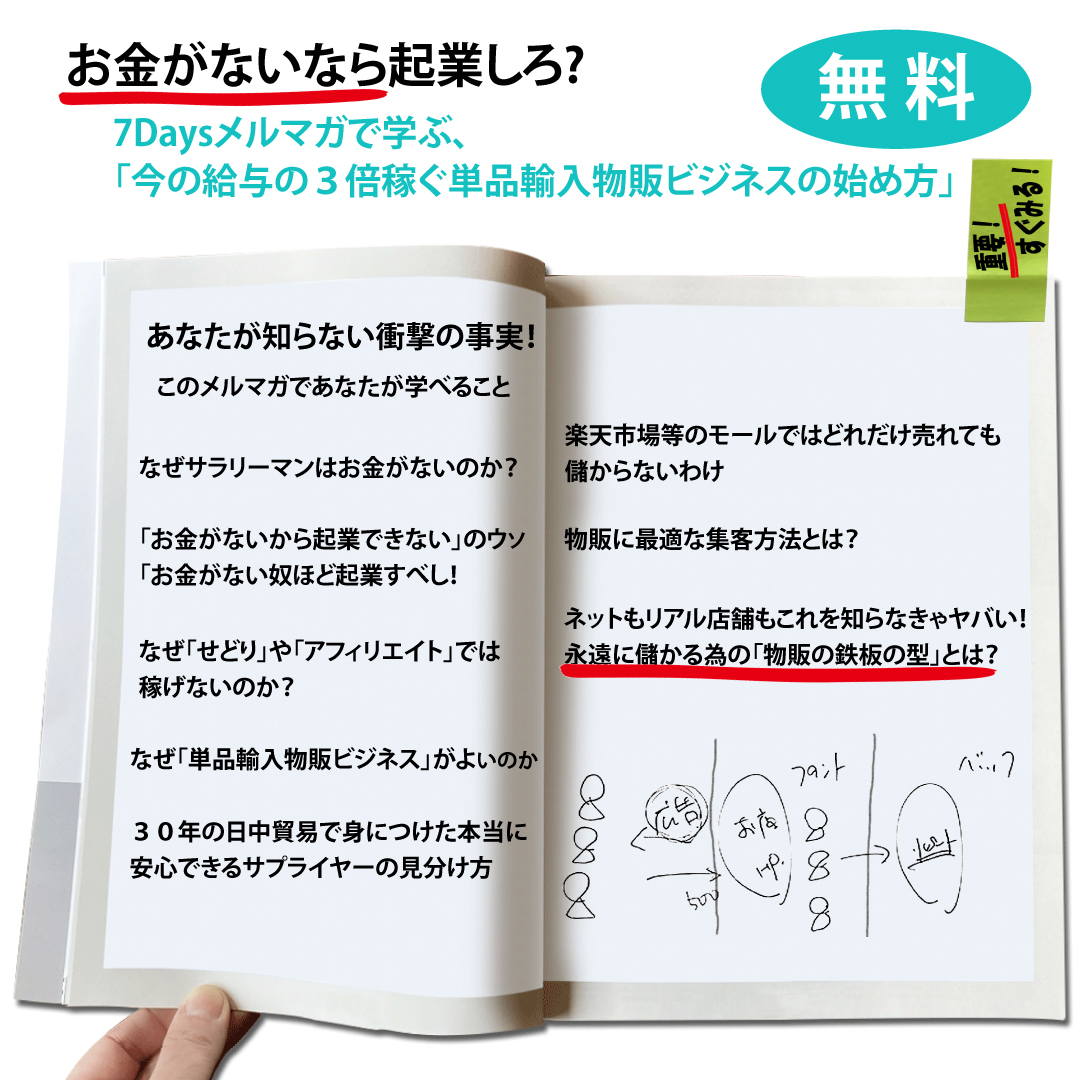 お金がないなら起業しろ?
無料
7Daysメルマガで学ぶ、
「今の給与の３倍稼ぐ単品輸入物販ビジネスの始め方」
重要!
すぐみる!
あなたが知らない衝撃の事実!
このメルマガであなたが学べること
なぜサラリーマンはお金がないのか?
「お金がないから起業できない」のウソ
「お金がない奴ほど起業すべし!
なぜ「せどり」や「アフィリエイト」では
稼げないのか?
なぜ「単品輸入物販ビジネス」がよいのか
３０年の日中貿易で身につけた本当に
安心できるサプライヤーの見分け方
楽天市場等のモールではどれだけ売れても
儲からないわけ
物販に最適な集客方法とは?
ネットもリアル店舗もこれを知らなきゃヤバい!
永遠に儲かる為の「物販の鉄板の型」とは?
フロント
バック
広告
お店
HP.
500